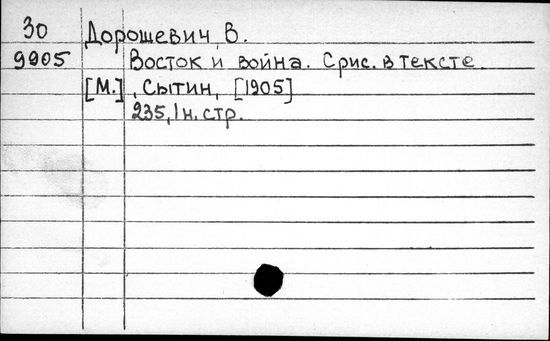 30 Дорошевич, В.
9905 Восток и война. С рис. в тексте.
[М.], Сытин, [1905]
235, 1 н. стр.